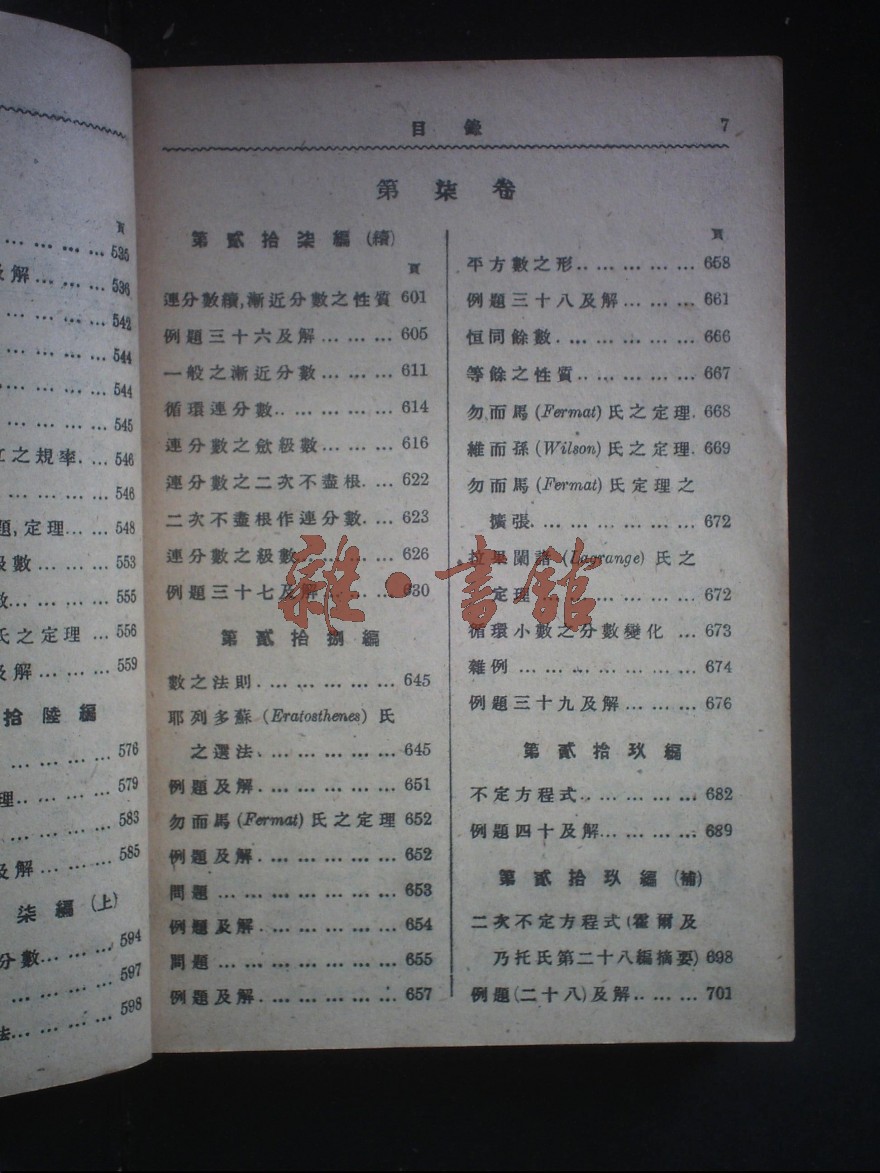 頁
… … … … 535
及解… … … 536
… … … … 542
… … … … 544
… … … … 544
… … … … 545
之規率. … 546
… … … … 546
題,定理… … 548
級數… … … 553
數… … … 555
氏之定理 … 556
及解… … … 559
拾陸編
… … … … 576
理.. … … … 579
… … … … 583
及解… … … 585
柒編(上)
分數… … … 594
… … … … 597
法… … … … 598
目錄 7
第柒卷
第貳拾柒編(續)
頁
連分數續,漸近分數之性質 601
例題三十六及解… … … 605
一般之漸近分數… … … 611
循環連分數.. … … … … 614
連分數之斂級數… … … 616
連分數之二次不盡根… … 622
二次不盡根作連分數. … 623
連分數之級數… … … … 626
例題三十七及解… … … 630
第貳拾捌編
數之法則. … … … … … 645
耶列多蘇 (Eratosthenes) 氏
之選法. … … … … … 645
例題及解. … … … … … 651
勿而馬 (Fermat) 氏之定理 652
例題及解. … … … … … 652
問題 … … … … … … … 653
例題及解. … … … … … 654
問題 … … … … … … … 655
例題及解. … … … … … 657
頁
平方數之形.. … … … … 658
例題三十八及解… … … 661
恒同餘數. … … … … … 666
等餘之性質.. … … … … 667
勿而馬 (Fermat) 氏之定理. 668
維而孫 (Wilson) 氏之定理. 669
勿而馬 (Fermat) 氏定理之
擴張. … … … … … … 672
拉果闌諸 (Lagrange) 氏之
定理 … … … … … … 672
循環小數之分數變化 … 673
雜例 … … … … … … … 674
例題三十九及解… … … 676
第貳拾玖編
不定方程式.. … … … … 682
例題四十及解… … … … 689
第貳拾玖編(補)
二次不定方程式(霍爾及
乃托氏第二十八編摘要) 698
例題(二十八)及解.. … … 701
雜·書館